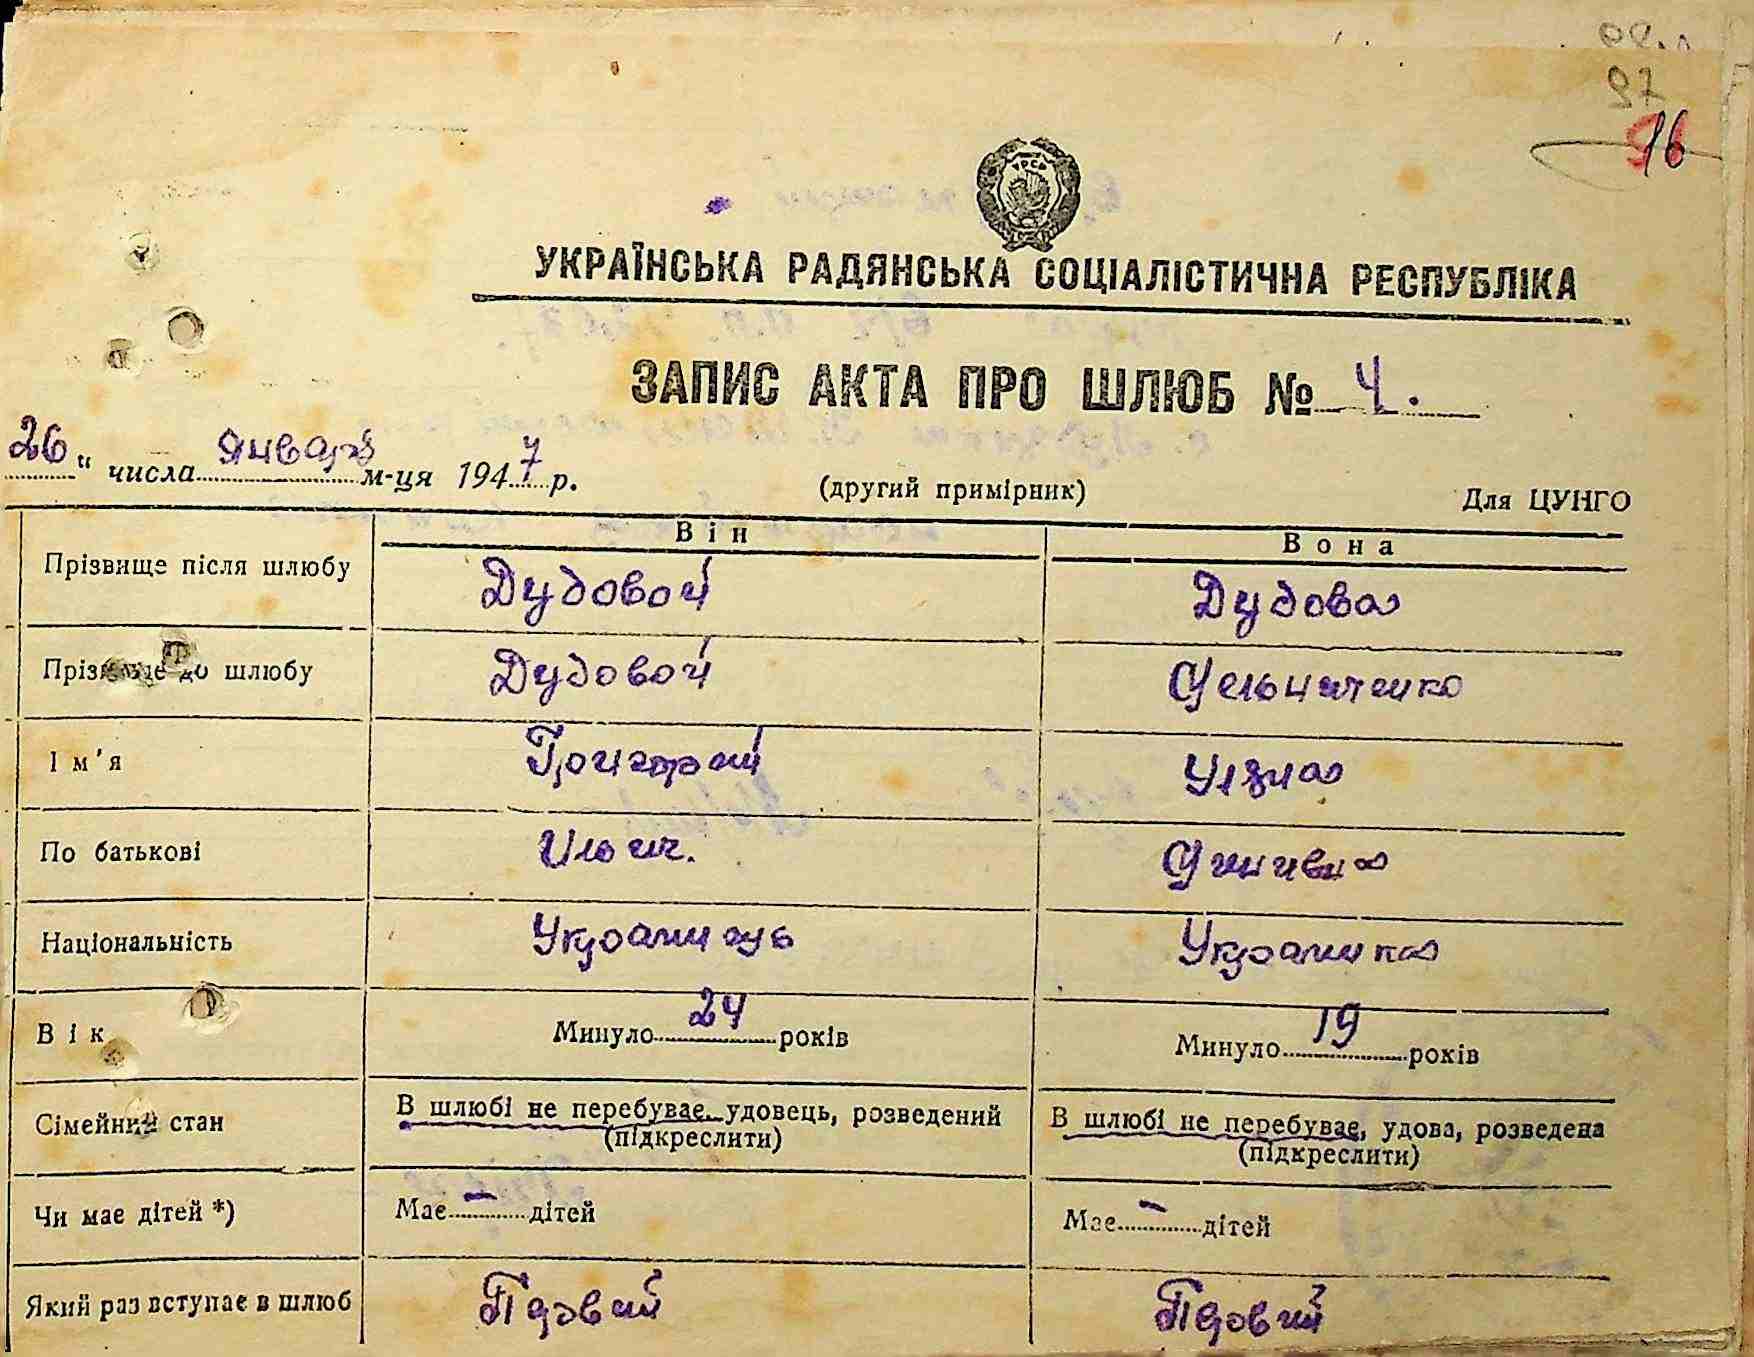 97
96
УРСР
УКРАЇНСЬКА РАДЯНСЬКА СОЦІАЛІСТИЧНА РЕСПУБЛІКА
ЗАПИС АКТА ПРО ШЛЮБ № 4.
26 " числа января м-ця 1947 р.
(другий примірник)
Для ЦУНГО
Він Вона
Прізвище після шлюбу Дудовой Дудова
Прізвище до шлюбу Дудовой
Ім'я Григорий Уляна
По батькові Ильич.
Національність Украинец Украинка
Вік Минуло 24 років Минуло 19 років
Сімейний стан В шлюбі не перебуває, удовець, розведений В шлюбі не перебуває, удова, розведена
(підкреслити) (підкреслити)
Чи має дітей *) Має - дітей Має - дітей
Який раз вступає в шлюб Первий Первий